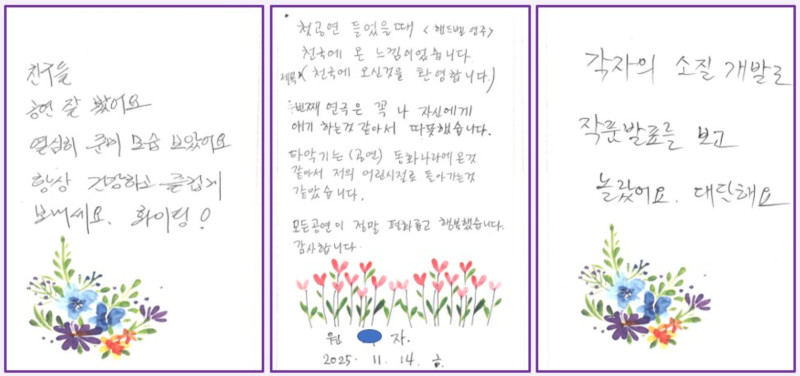 친구들
공연 잘 봤어요
열심히 준비 모습 보았어요
항상 건강하고 즐겁게
보내세요. 화이팅!
첫공연 들었을때 <핸드벨 연주>
천국에 온 느낌이었습니다
제목 (천국에 오신것을 환영합니다.)
번째 연극은 꼭 나 자신에게
얘기 하는것 같아서 따뜻했습니다.
타악기는 (공연) 동화나라에 온것
같아서 저의 어린시절로 돌아가는것
같았습니다.
모든공연이 정말 평화롭고 행복했습니다.
감사합니다.
원 자.
2025. 11. 14. 금.
각자의 소질 개발로
작품발표를 보고
놀랐어요. 대단해요